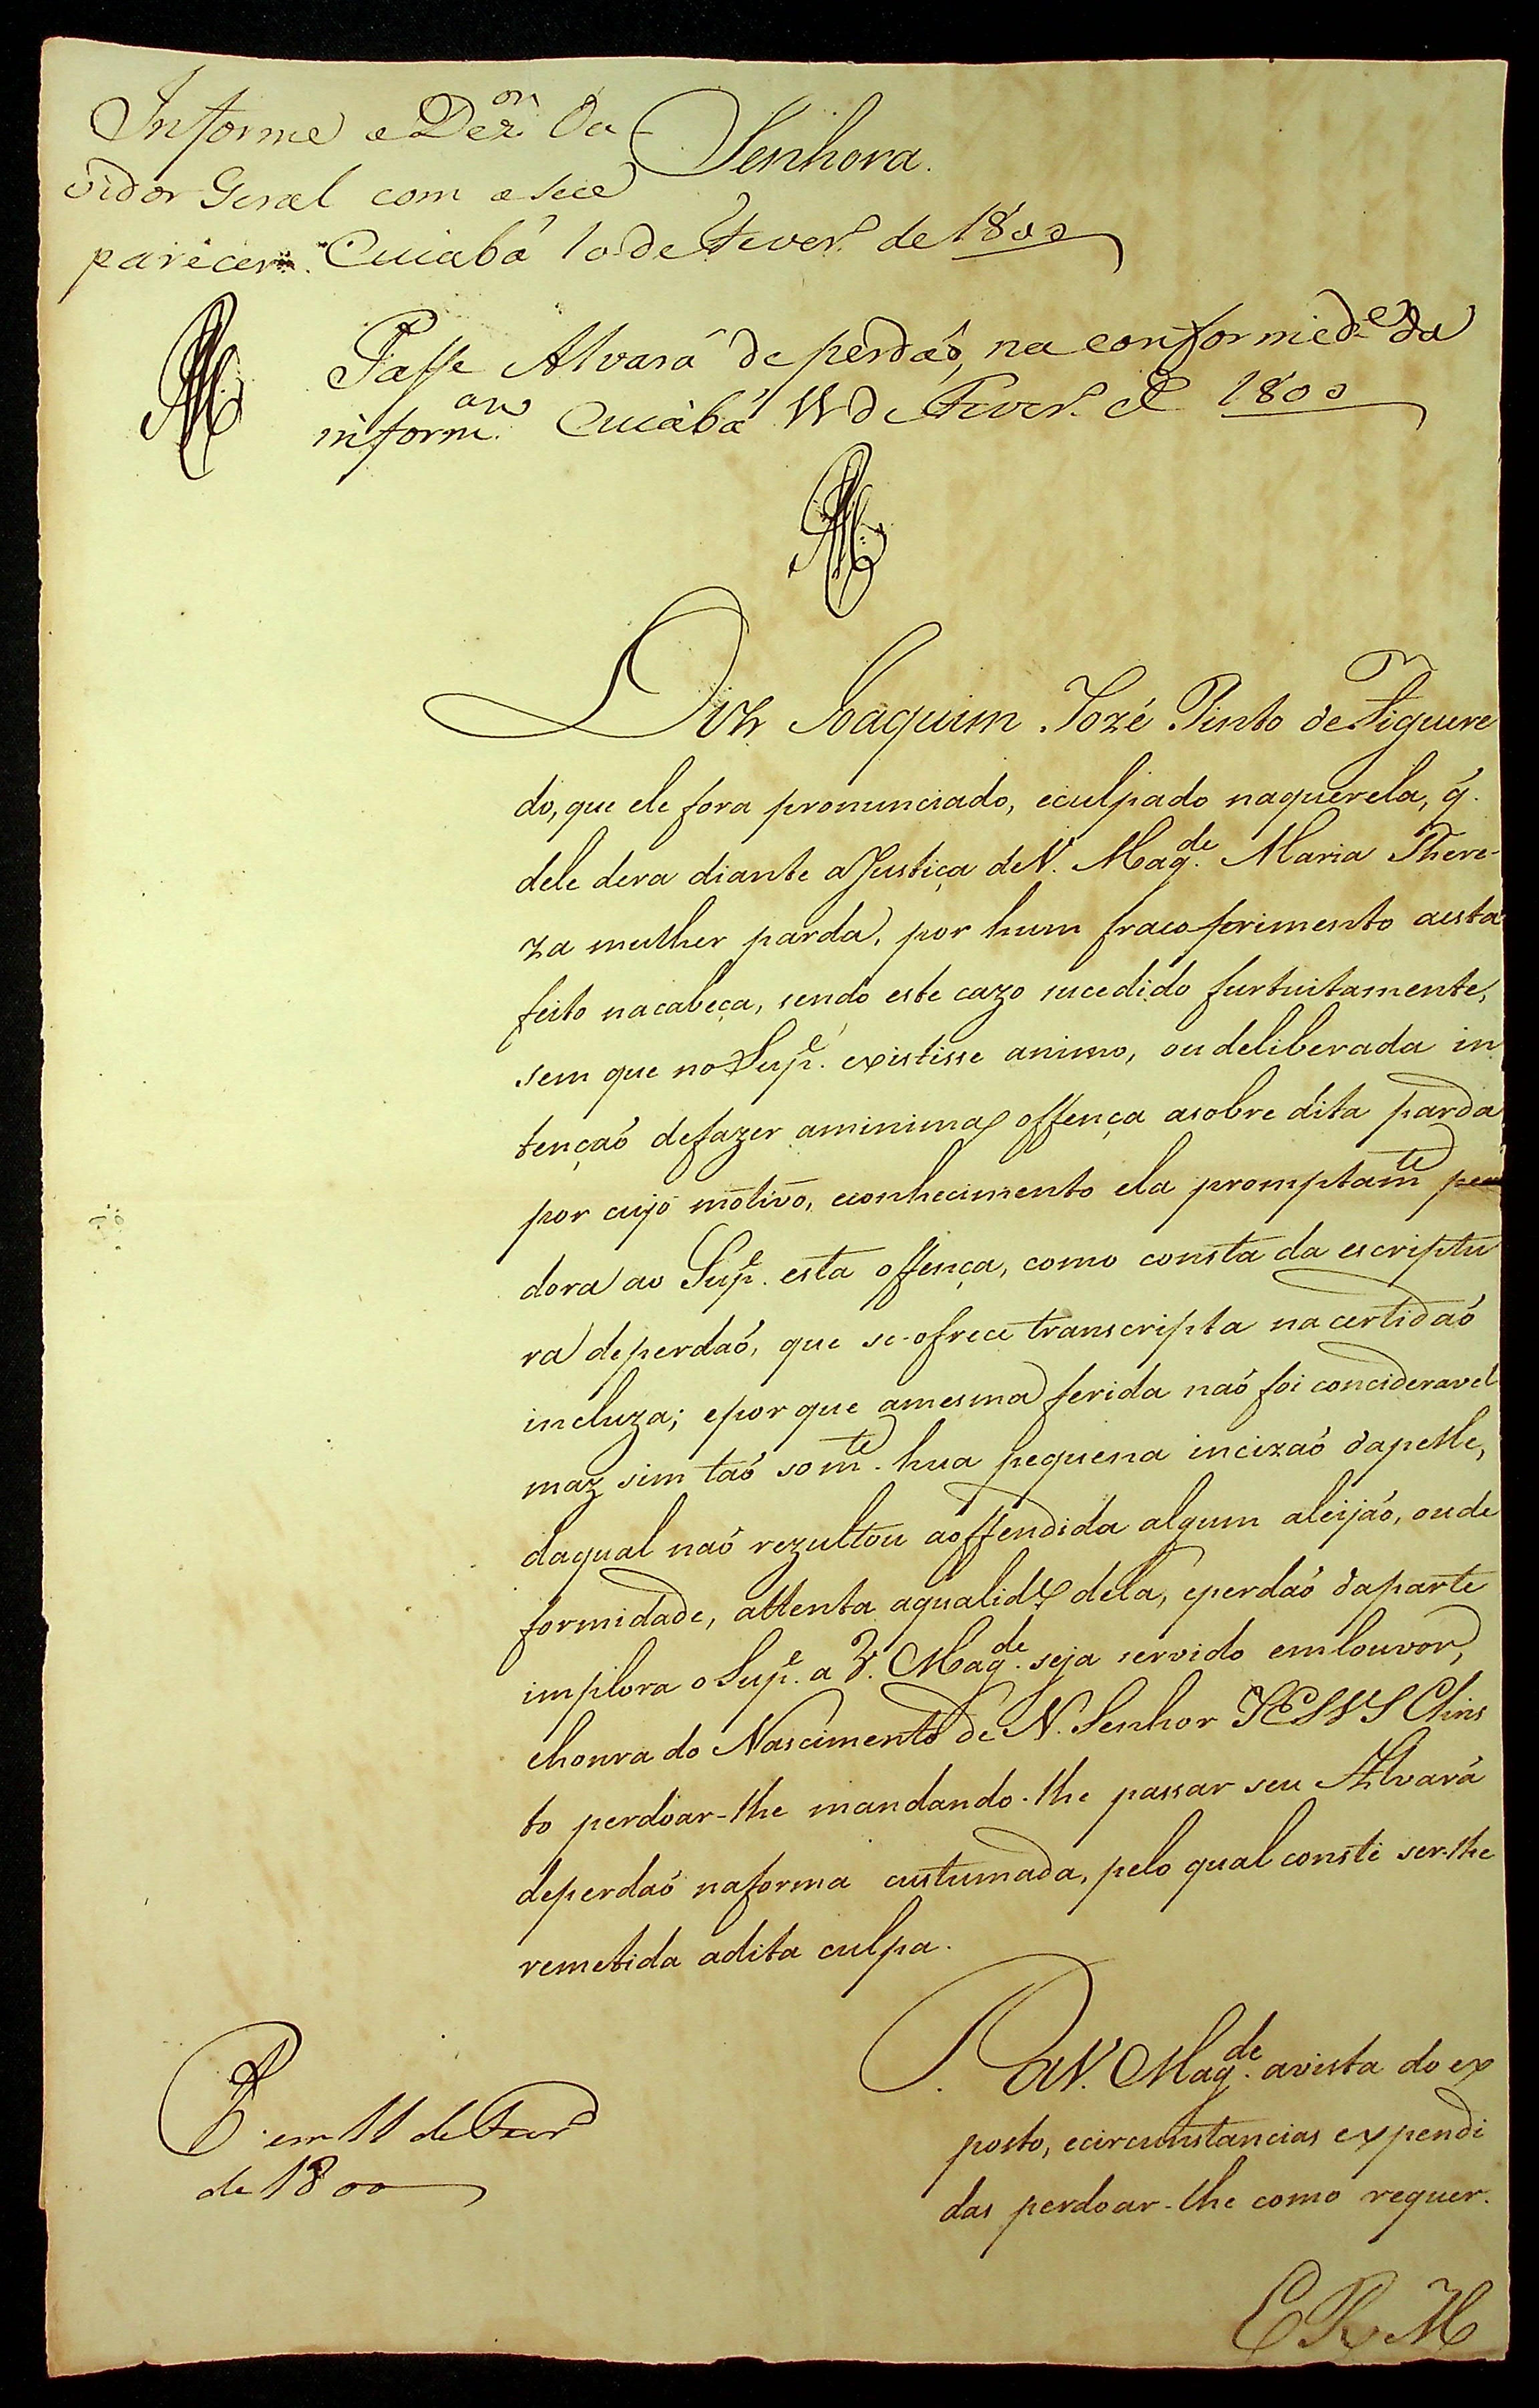 Informe o Dez.or Ou
Senhora.
vidor Geral com o seo
parecer. Cuiabá 10 de Fever.o de 1800
Passe Alvará de perdaó, na conformid.e da
inform.am Cuiabá 11 de Fever.o de 1800
Diz Joaquim Jozé Pinto de Figuere
do, que ele fora pronunciado, eculpado naquerela, q̃.
dele dera diante aJustiça deV. Mag.de Maria There-
za mulher parda, por hum fraco ferimento aesta
feito nacabeça, sendo este cazo sucedido furtuitamente,
sem que no Sup.e existisse animo, ou deliberada in
tençaó defazer aminima offença asobre dita parda
por cujo motivo, econhecimento ela promptam.te per
dora ao Sup.e esta offença, como consta da escriptu
ra deperdaó, que se-ofrece transcripta na certidaó
incluza; epor que amesma ferida naó foi concideravel
maz sim taó som.te hua pequena incizaó dapelle,
daqual naó rezultou aoffendida algum aleijáo, oude
formidade, attenta aqualid.e dela, eperdaó daparte
implora o Sup.e a V. Mag.de seja servido emlouvor,
ehonra do Nascimento de N. Senhor JESUS Chris
to perdoar-lhe mandando-lhe passar seu Alvará
deperdaó naforma custumada, pelo qual conste ser-lhe
remetida adita culpa.
P. aV. Mag.de avista do ex
posto, ecircunstancias expendi
das perdoar-lhe como requer.
P. em 11 de Fevr.o
de 1800
E R M